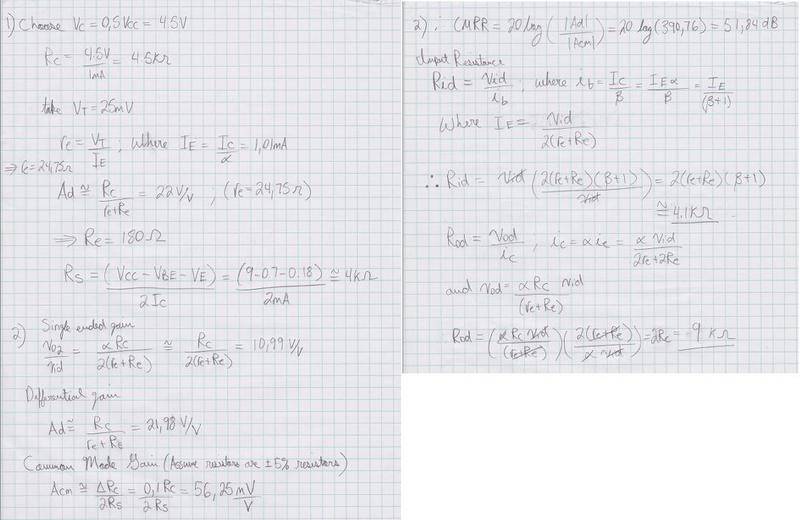 1) Choose Vc = 0,5Vcc = 4.5V
Rc = 4.5V/1mA = 4.5KΩ
take VT = 25mV
re = VT/IE ; Where IE = Ic/α = 1,01mA
⇒ re = 24,75Ω
Ad ≅ Rc/(re+Re) = 22 V/V ; (re = 24,75Ω)
⇒ Re = 180Ω
Rs = (Vcc - VBE - VE)/2Ic = (9-0.7-0.18)/2mA ≅ 4KΩ
2) Single ended gain
vo2/vid = αRc/2(re+Re) ≅ Rc/2(re+Re) = 10,99 V/V
Differential gain
Ad ≅ Rc/(re+RE) = 21,98 V/V
Common Mode Gain (Assume resistors are ±5% resistors)
Acm ≅ ΔRc/2Rs = 0,1Rc/2Rs = 56,25 mV/V
2) ∴ CMRR = 20 log (|Ad|/|Acm|) = 20 log (390,76) = 51,84 dB
Input Resistance
Rid = vid/ib ; where ib = Ic/β = IEα/β = IE/(β+1)
Where IE = vid/2(re+Re)
∴ Rid = vid (2(re+Re)(β+1)/vid) = 2(re+Re)(β+1)
≅ 4.1KΩ
Rod = vod/ic , ic = αie = α vid/(2re+2Re)
and vod = αRc vid/(re+Re)
Rod = (αRc vid/(re+Re)) (2(re+Re)/α vid) = 2Rc = 9 KΩ